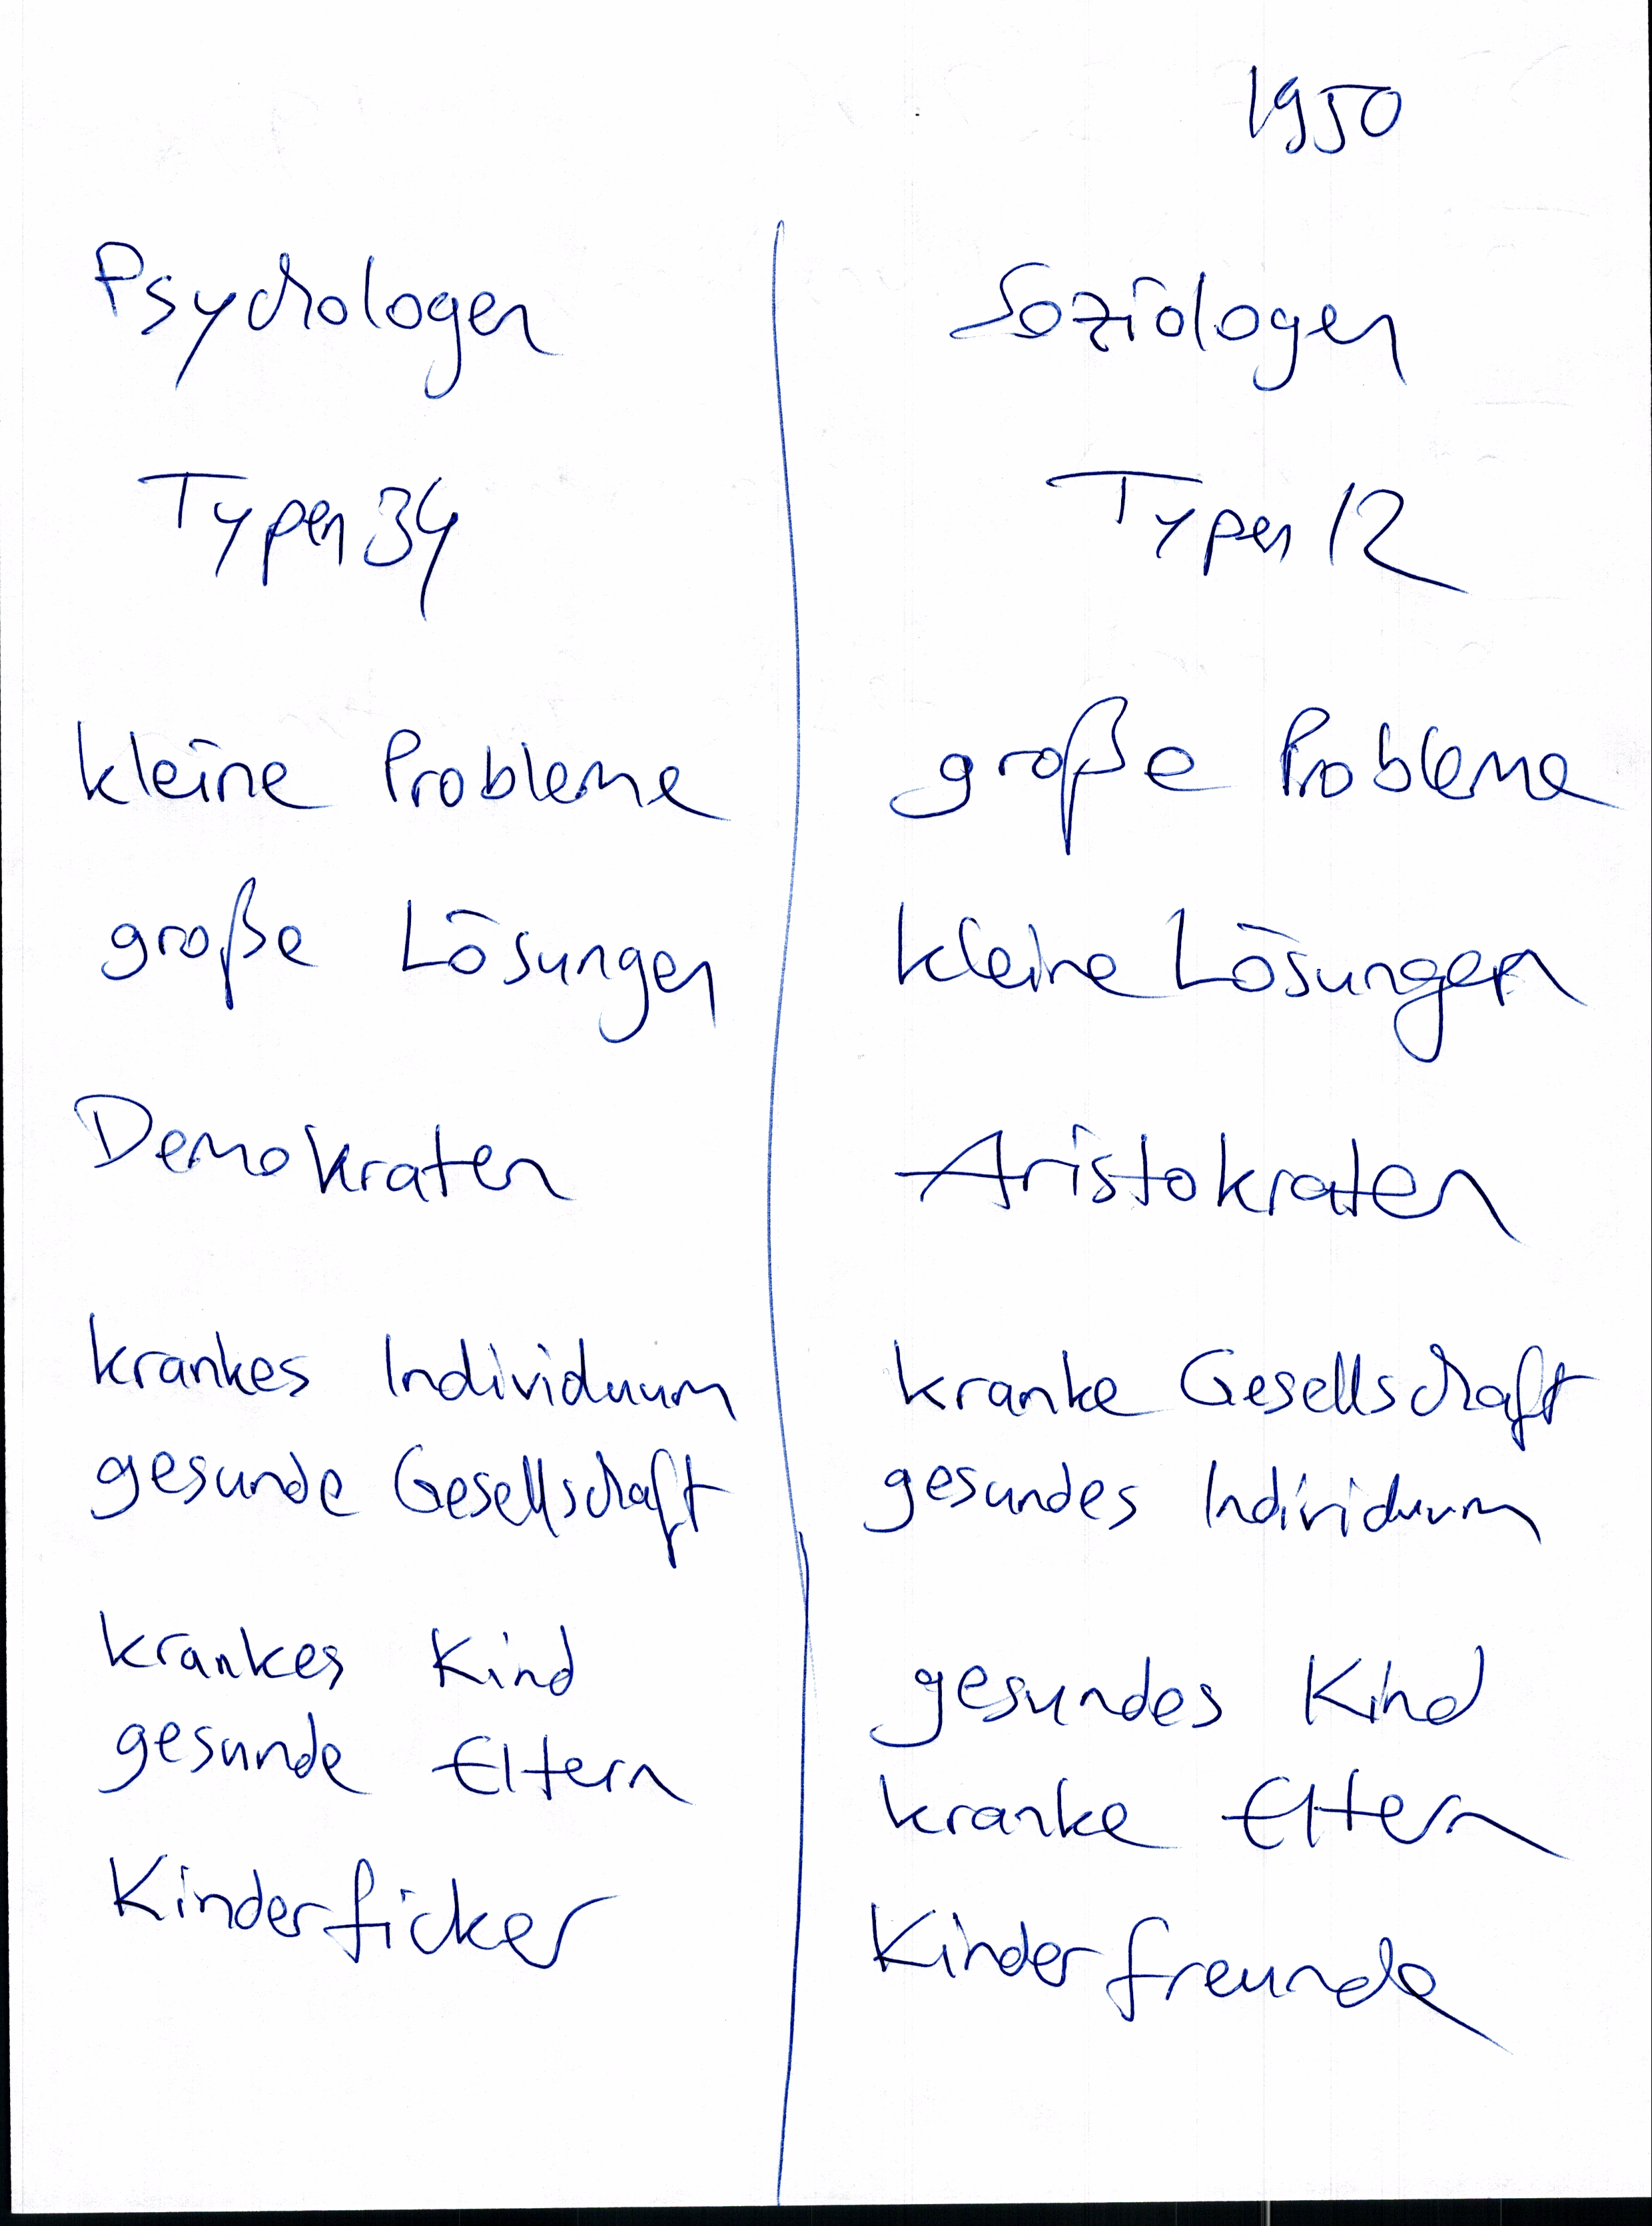 1950
Psychologen
Typen 34
kleine Probleme
große Lösungen
Demokraten
krankes Individuum
gesunde Gesellschaft
krankes Kind
gesunde Eltern
Kinderficker
Soziologen
Typen 12
große Probleme
kleine Lösungen
Aristokraten
kranke Gesellschaft
gesundes Individuum
gesundes Kind
kranke Eltern
Kinderfreunde